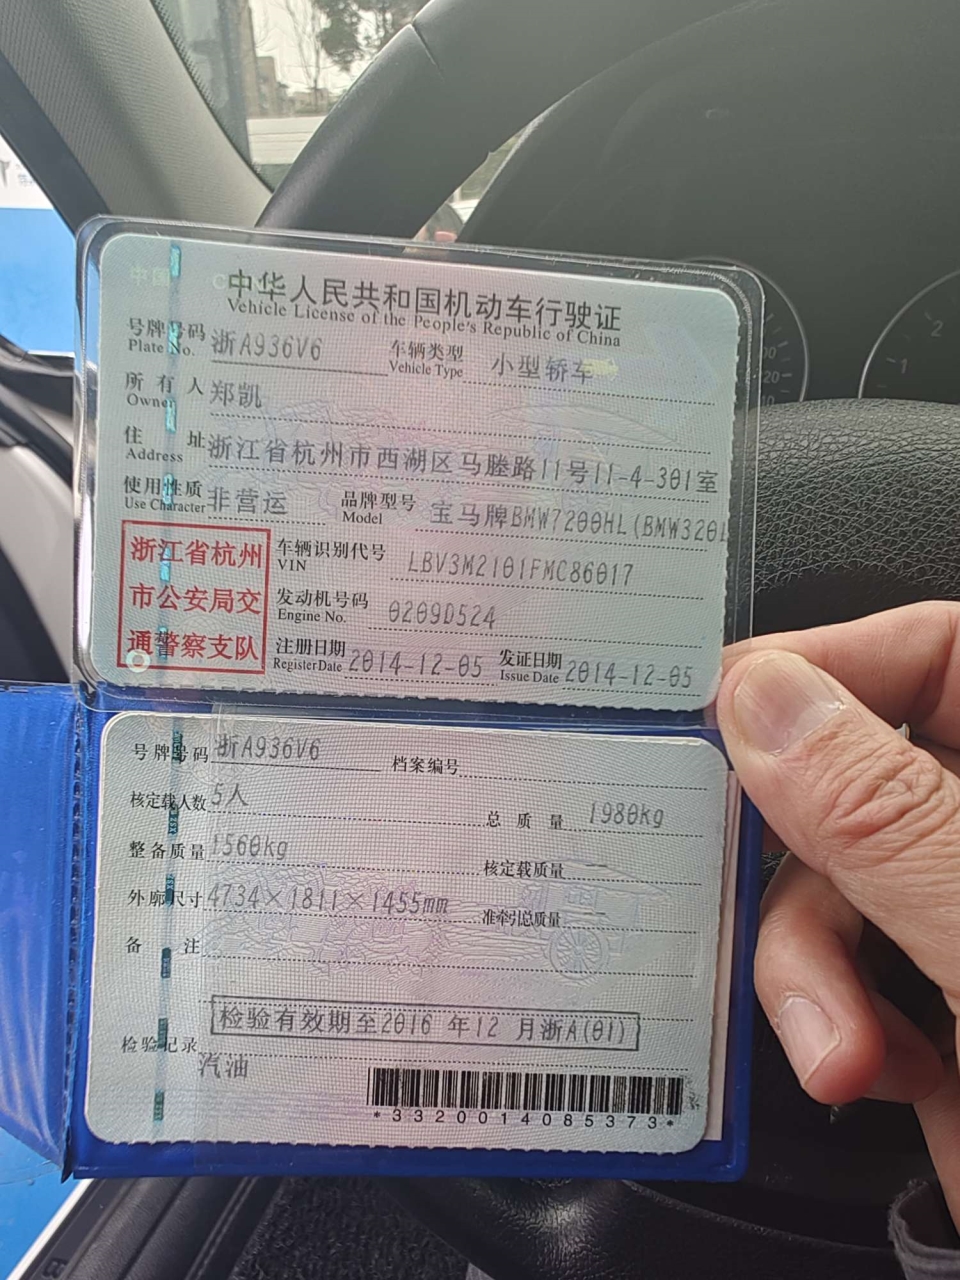 中华人民共和国机动车行驶证
Vehicle License of the People's Republic of China
号牌号码 浙A936V6 车辆类型 小型轿车
Plate No. Vehicle Type
所有人 郑凯
Owner
住址 浙江省杭州市西湖区马塍路11号11-4-301室
Address
使用性质 非营运 品牌型号 宝马牌BMW7200HL(BMW320L
Use Character Model
浙江省杭州
市公安局交
通警察支队
车辆识别代号 LBV3M2101FMC86017
VIN
发动机号码 0209D524
Engine No.
注册日期 2014-12-05 发证日期 2014-12-05
Register Date Issue Date
号牌号码 浙A936V6 档案编号
核定载人数 5人 总质量 1980kg
整备质量 1560kg 核定载质量 —
外廓尺寸 4734×1811×1455mm 准牵引总质量 —
备注
检验有效期至2016 年12 月浙A(01)
检验记录
汽油
*3320014085373*
20
1
2